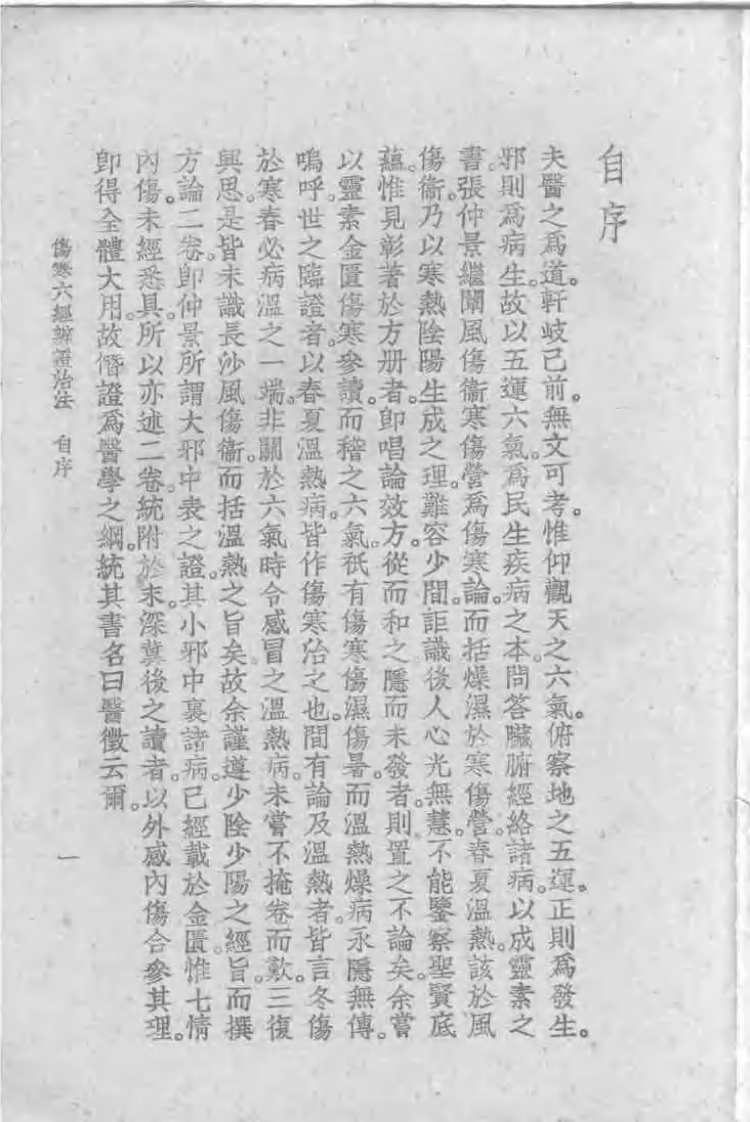 自序
夫醫之爲道。軒岐已前。無文可考。惟仰觀天之六氣。俯察地之五運。正則爲發生。
邪則爲病生。故以五運六氣。爲民生疾病之本。問答臟腑經絡諸病。以成靈素之
書。張仲景繼闡風傷衞寒傷營爲傷寒論。而括燥濕於寒傷營。春夏溫熱。該於風
傷衞。乃以寒熱陰陽生成之理。難容少間。詎識後人心光無慧。不能鑒察聖賢底
蘊。惟見彰著於方册者。卽唱論效方。從而和之。隱而未發者。則置之不論矣。余嘗
以靈素金匱傷寒參讀。而稽之六氣。祇有傷寒傷濕傷暑。而溫熱燥病永隱無傳。
嗚呼。世之臨證者。以春夏溫熱病。皆作傷寒治之也。間有論及溫熱者。皆言冬傷
於寒春必病溫之一端。非關於六氣時令感冒之溫熱病。未嘗不掩卷而歎。三復
興思。是皆未識長沙風傷衞。而括溫熱之旨矣。故余謹遵少陰少陽之經旨。而撰
方論二卷。卽仲景所謂大邪中表之證。其小邪中裏諸病。已經載於金匱。惟七情
內傷。未經悉具。所以亦述二卷。統附於末。深冀後之讀者。以外感內傷合參其理。
卽得全體大用。故僭證爲醫學之綱。統其書名曰醫徵云爾。
傷寒六經辨證治法　自序
一